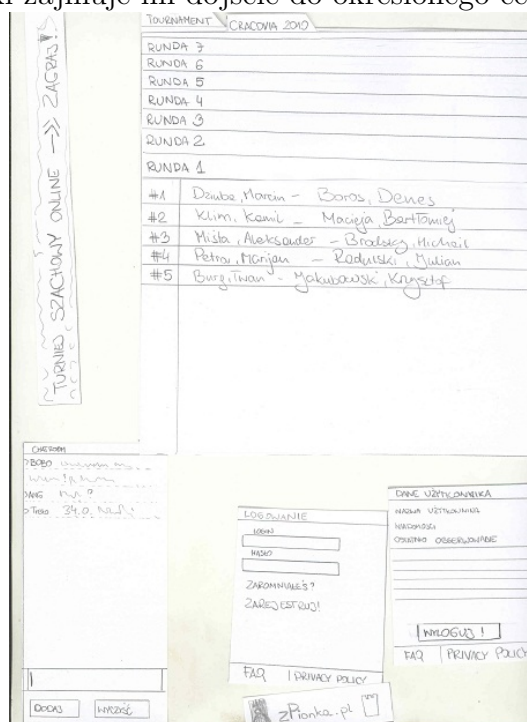 zajmuje im dojście do określonego
TOURNAMENT CRACOVIA 2010
RUNDA 7
RUNDA 6
RUNDA 5
RUNDA 4
RUNDA 3
RUNDA 2
RUNDA 1
#1 Dziuba, Marcin - Boros, Denes
#2 Klim, Kamil - Macieja, Bartłomiej
#3 Mista, Aleksander - Brodsky, Michail
#4 Petrov, Marijan - Radulski, Julian
#5 Burg, Twan - Jakubowski, Krzysztof
TURNIEJ SZACHOWY ONLINE —>> ZAGRAJ!
CHATROOM
> BOBO
> ANG
DODAJ WYCZYŚĆ
LOGOWANIE
LOGIN
HASŁO
ZAPOMNIAŁEŚ?
ZAREJESTRUJ!
FAQ | PRIVACY POLICY
zPionka.pl
DANE UŻYTKOWNIKA
NAZWA UŻYTKOWNIKA
WIADOMOŚCI
OSTATNIO OBSERWOWANE
WYLOGUJ!
FAQ | PRIVACY POLICY